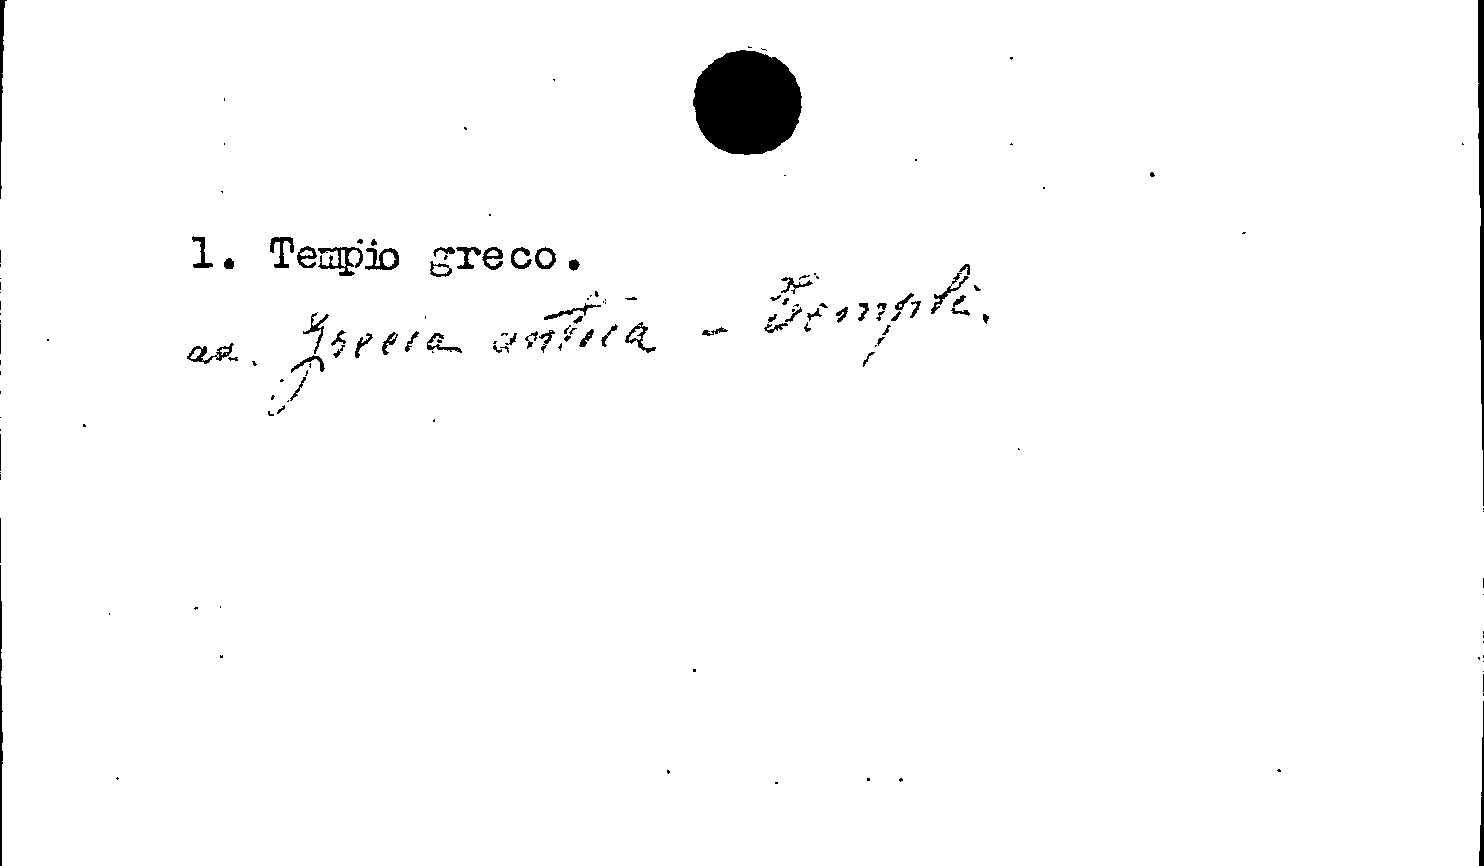 1. Tempio greco.
aa. Grecia antica - Templi.